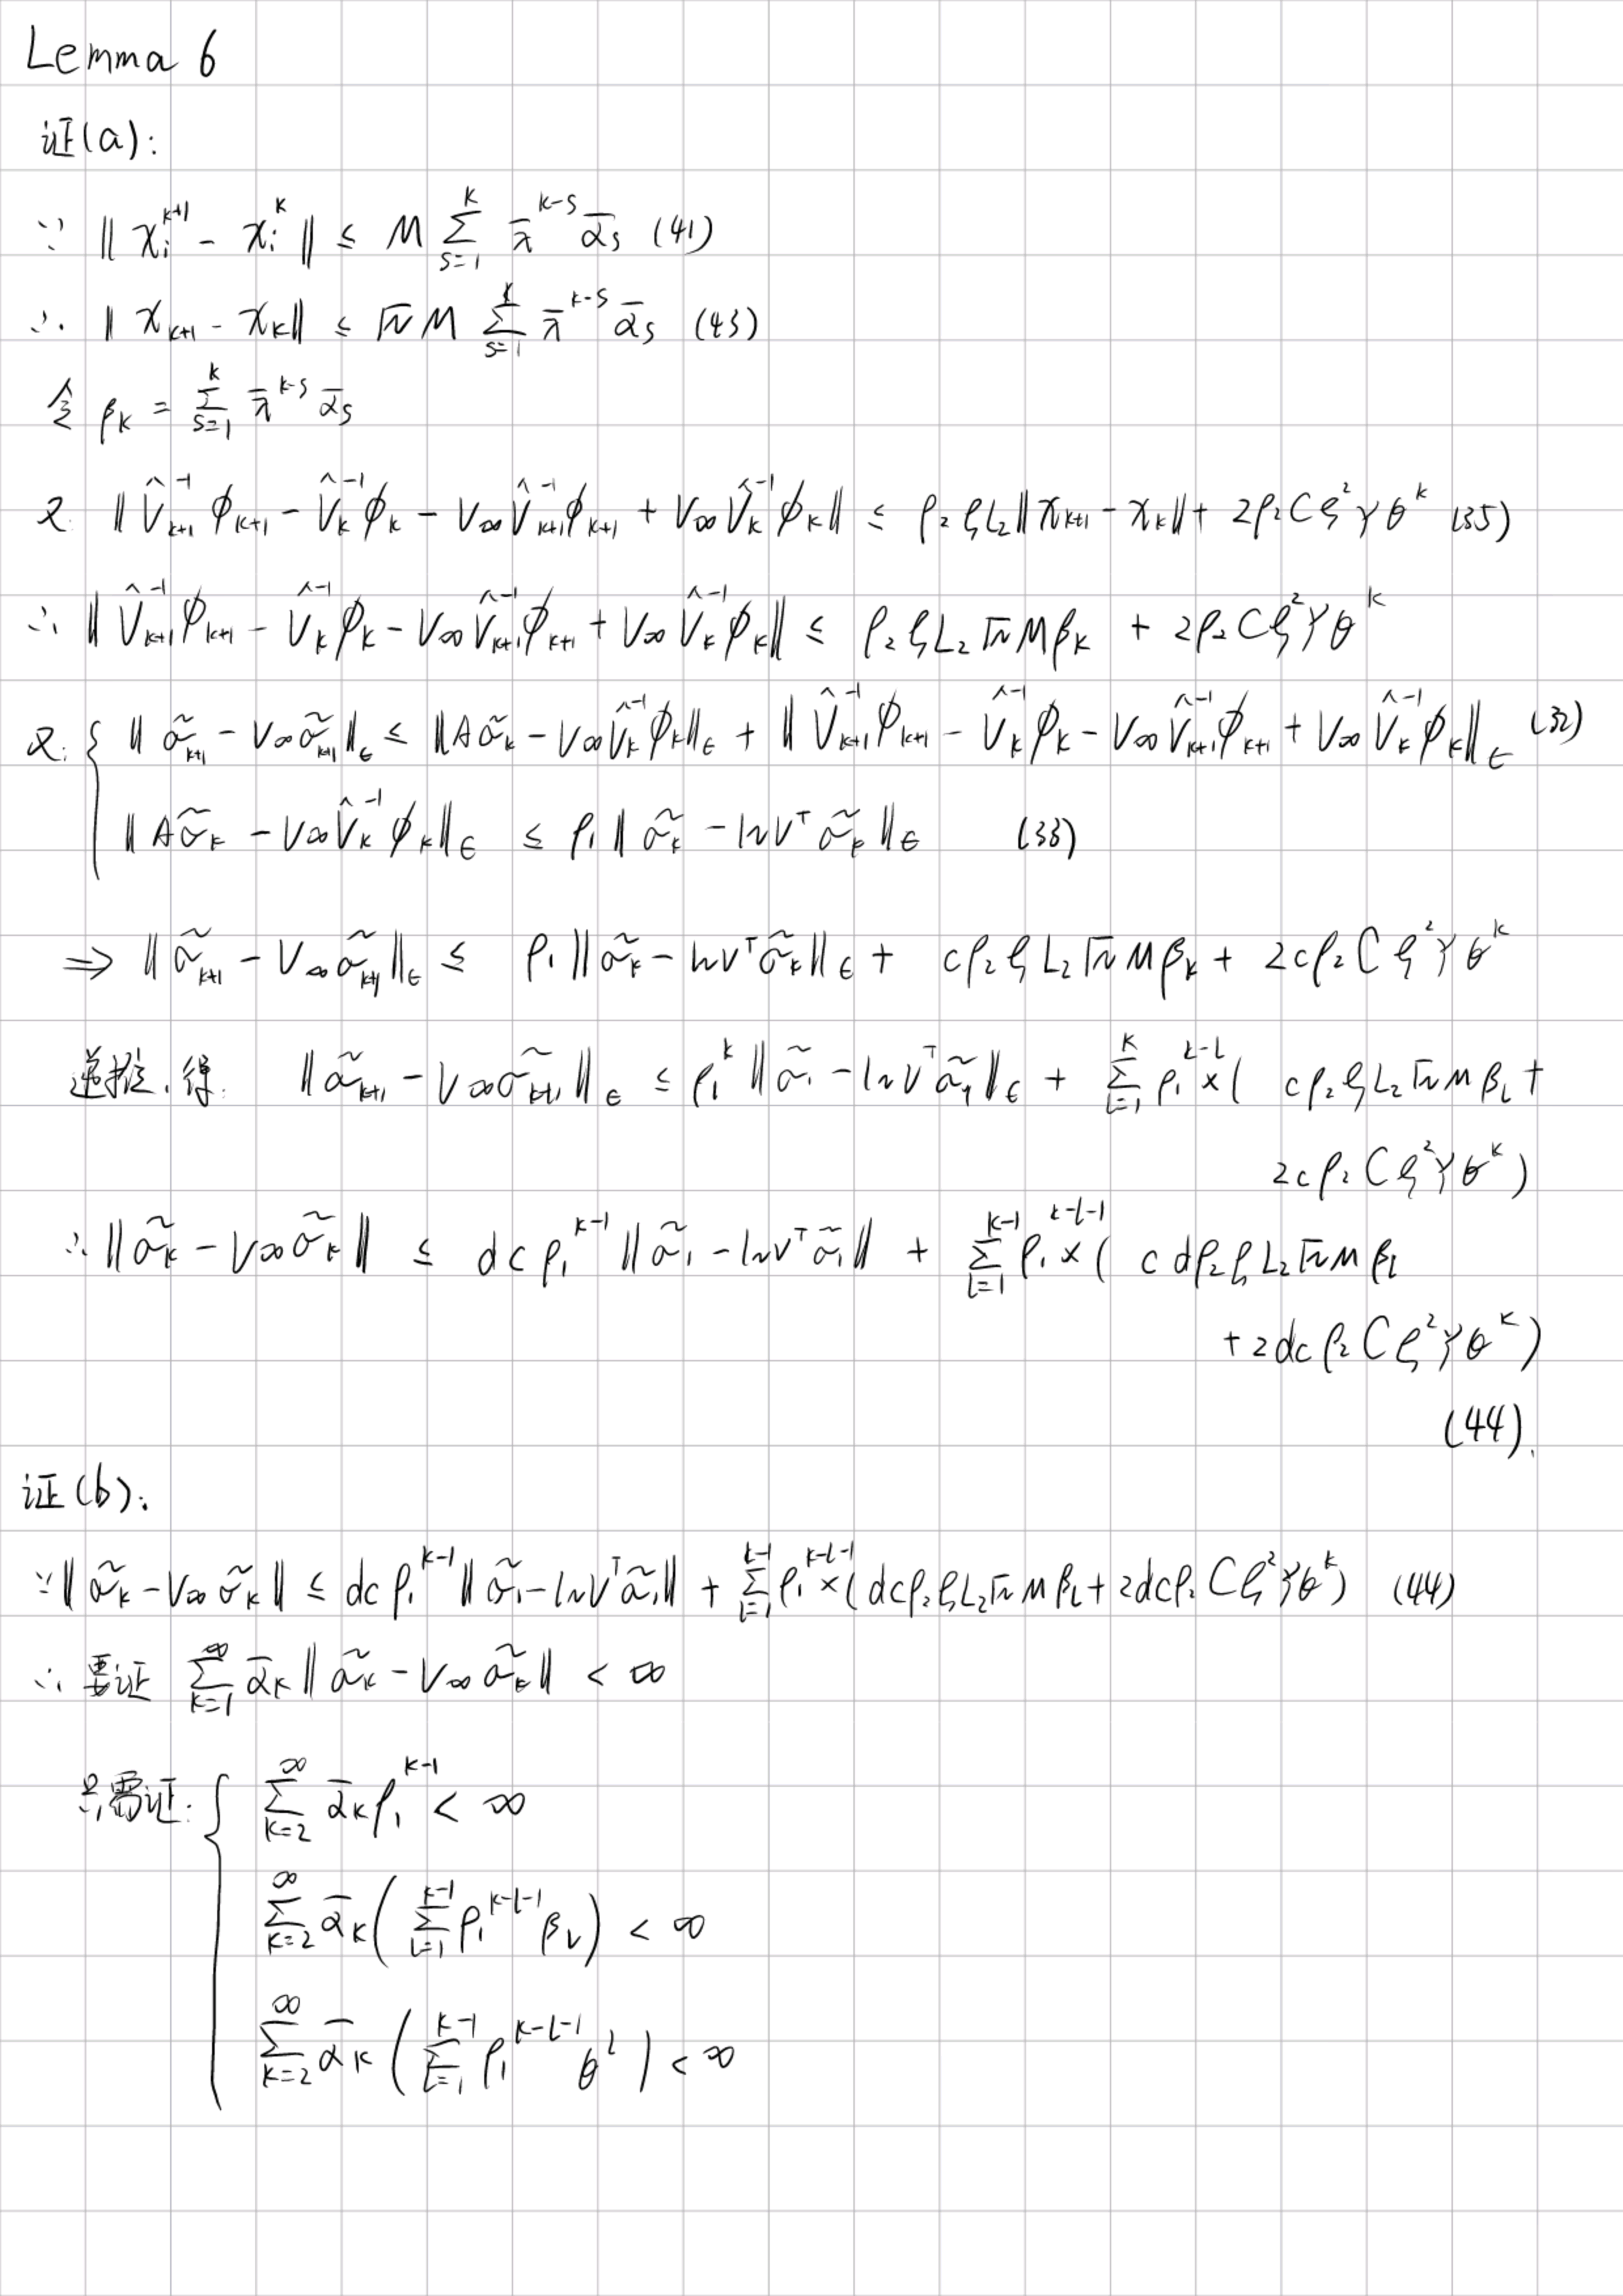 Lemma 6
证(a):
∵ ‖x_i^{k+1} - x_i^k‖ ≤ M Σ_{s=1}^{k} λ̄^{k-s} ᾱ_s (41)
∴ ‖x_{k+1} - x_k‖ ≤ √N M Σ_{s=1}^{k} λ̄^{k-s} ᾱ_s (43)
令 β_k = Σ_{s=1}^{k} λ̄^{k-s} ᾱ_s
又: ‖V̂_{k+1}^{-1} φ_{k+1} - V̂_k^{-1} φ_k - V_∞ V̂_{k+1}^{-1} φ_{k+1} + V_∞ V̂_k^{-1} φ_k‖ ≤ ρ_2 ζ L_2 ‖x_{k+1} - x_k‖ + 2ρ_2 C ζ^2 γ θ^k (35)
∴ ‖V̂_{k+1}^{-1} φ_{k+1} - V̂_k^{-1} φ_k - V_∞ V̂_{k+1}^{-1} φ_{k+1} + V_∞ V̂_k^{-1} φ_k‖ ≤ ρ_2 ζ L_2 √N M β_k + 2ρ_2 C ζ^2 γ θ^k
又: { ‖σ̃_{k+1} - V_∞ σ̃_{k+1}‖_ε ≤ ‖A σ̃_k - V_∞ V̂_k^{-1} φ_k‖_ε + ‖V̂_{k+1}^{-1} φ_{k+1} - V̂_k^{-1} φ_k - V_∞ V̂_{k+1}^{-1} φ_{k+1} + V_∞ V̂_k^{-1} φ_k‖_ε (32)
‖A σ̃_k - V_∞ V̂_k^{-1} φ_k‖_ε ≤ ρ_1 ‖σ̃_k - 1_N v^T σ̃_k‖_ε (33)
⇒ ‖σ̃_{k+1} - V_∞ σ̃_{k+1}‖_ε ≤ ρ_1 ‖σ̃_k - 1_N v^T σ̃_k‖_ε + cρ_2 ζ L_2 √N M β_k + 2cρ_2 C ζ^2 γ θ^k
递推,得: ‖σ̃_{k+1} - V_∞ σ̃_{k+1}‖_ε ≤ ρ_1^k ‖σ̃_1 - 1_N v^T σ̃_1‖_ε + Σ_{l=1}^{k} ρ_1^{k-l} × ( cρ_2 ζ L_2 √N M β_l +
2cρ_2 C ζ^2 γ θ^k )
∴ ‖σ̃_k - V_∞ σ̃_k‖ ≤ dc ρ_1^{k-1} ‖σ̃_1 - 1_N v^T σ̃_1‖ + Σ_{l=1}^{k-1} ρ_1^{k-l-1} × ( c dρ_2 ζ L_2 √N M β_l
+ 2dc ρ_2 C ζ^2 γ θ^k )
(44).
证(b):
∵ ‖σ̃_k - V_∞ σ̃_k‖ ≤ dc ρ_1^{k-1} ‖σ̃_1 - 1_N v^T σ̃_1‖ + Σ_{l=1}^{k-1} ρ_1^{k-l-1} × ( dcρ_2 ζ L_2 √N M β_l + 2dcρ_2 C ζ^2 γ θ^k ) (44)
∴ 要证 Σ_{k=1}^{∞} ᾱ_k ‖σ̃_k - V_∞ σ̃_k‖ < ∞
只需证: { Σ_{k=2}^{∞} ᾱ_k ρ_1^{k-1} < ∞
Σ_{k=2}^{∞} ᾱ_k ( Σ_{l=1}^{k-1} ρ_1^{k-l-1} β_l ) < ∞
Σ_{k=2}^{∞} ᾱ_k ( Σ_{l=1}^{k-1} ρ_1^{k-l-1} θ^l ) < ∞